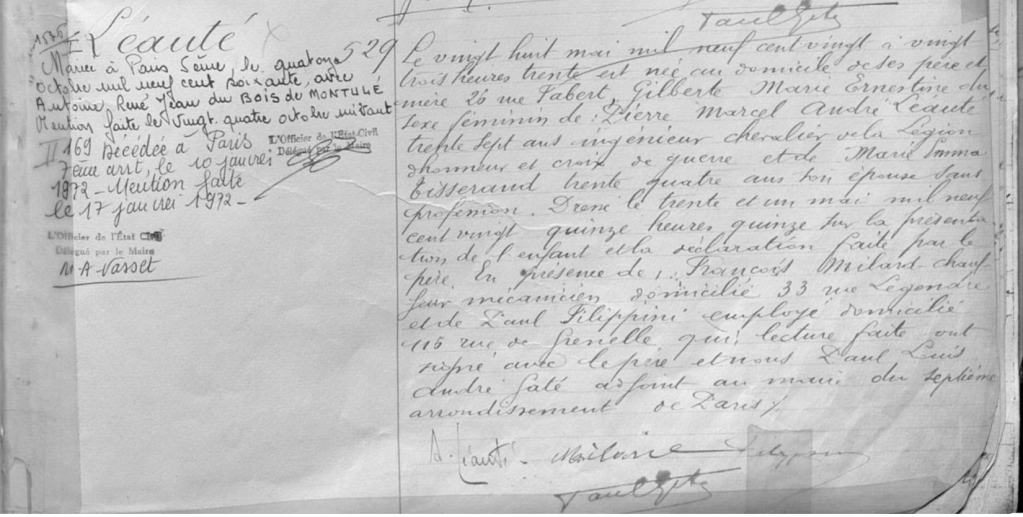 Paul Gaté
1535
Léauté
529
I Mariée à Paris 5ème, le quatorze
Octobre mil neuf cent soixante, avec
Antoine, René Jean du BOIS de MONTULÉ
Mention faite le vingt-quatre octobre suivant
L'Officier de l'État-Civil
Délégué par le Maire
II 169 Décédée à Paris
7ème arrt, le 10 janvier
1972 - Mention faite
le 17 janvier 1972 -
L'Officier de l'État Civil
Délégué par le Maire
M A Vasset
Le vingt huit mai mil neuf cent vingt à vingt
trois heures trente est née au domicile de ses père et
mère 26 rue Fabert, Gilberte Marie Ernestine du
sexe féminin de : Pierre Marcel André Léauté
trente sept ans ingénieur chevalier de la Légion
dhonneur et croix de guerre et de Marie Emma
Tisserand trente quatre ans son épouse sans
profession. Dressé le trente et un mai mil neuf
cent vingt quinze heures quinze sur la présenta
tion de l'enfant et la déclaration faite par le
père. En présence de : François Milard chauf-
feur mécanicien domicilié 33 rue Legendre
et de Paul Filippini employé domicilié
116 rue de Grenelle qui, lecture faite ont
signé avec le père et nous Paul Louis
André Gaté adjoint au maire du septième
arrondissement de Paris /.
A. Léauté -
Paul Gaté